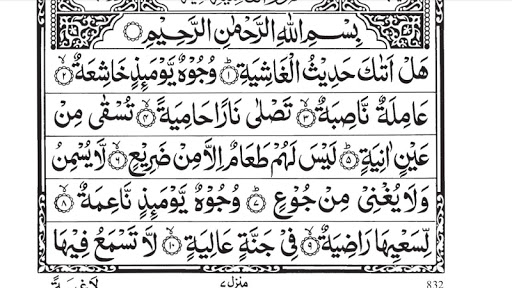 بِسْمِ اللهِ الرَّحْمٰنِ الرَّحِيْمِ
هَلْ اَتٰىكَ حَدِيْثُ الْغَاشِيَةِ ؕ﴿۱﴾ وُجُوْهٌ يَّوْمَىِٕذٍ خَاشِعَةٌ ۙ﴿۲﴾
عَامِلَةٌ نَّاصِبَةٌ ۙ﴿۳﴾ تَصْلٰى نَارًا حَامِيَةً ۙ﴿۴﴾ تُسْقٰى مِنْ
عَيْنٍ اٰنِيَةٍ ؕ﴿۵﴾ لَيْسَ لَهُمْ طَعَامٌ اِلَّا مِنْ ضَرِيْعٍ ۙ﴿۶﴾ لَّا يُسْمِنُ
وَلَا يُغْنِىْ مِنْ جُوْعٍ ؕ﴿۷﴾ وُجُوْهٌ يَّوْمَىِٕذٍ نَّاعِمَةٌ ۙ﴿۸﴾
لِّسَعْيِهَا رَاضِيَةٌ ۙ﴿۹﴾ فِىْ جَنَّةٍ عَالِيَةٍ ۙ﴿۱۰﴾ لَّا تَسْمَعُ فِيْهَا
لَاغِيَةً
منزل ۷
832